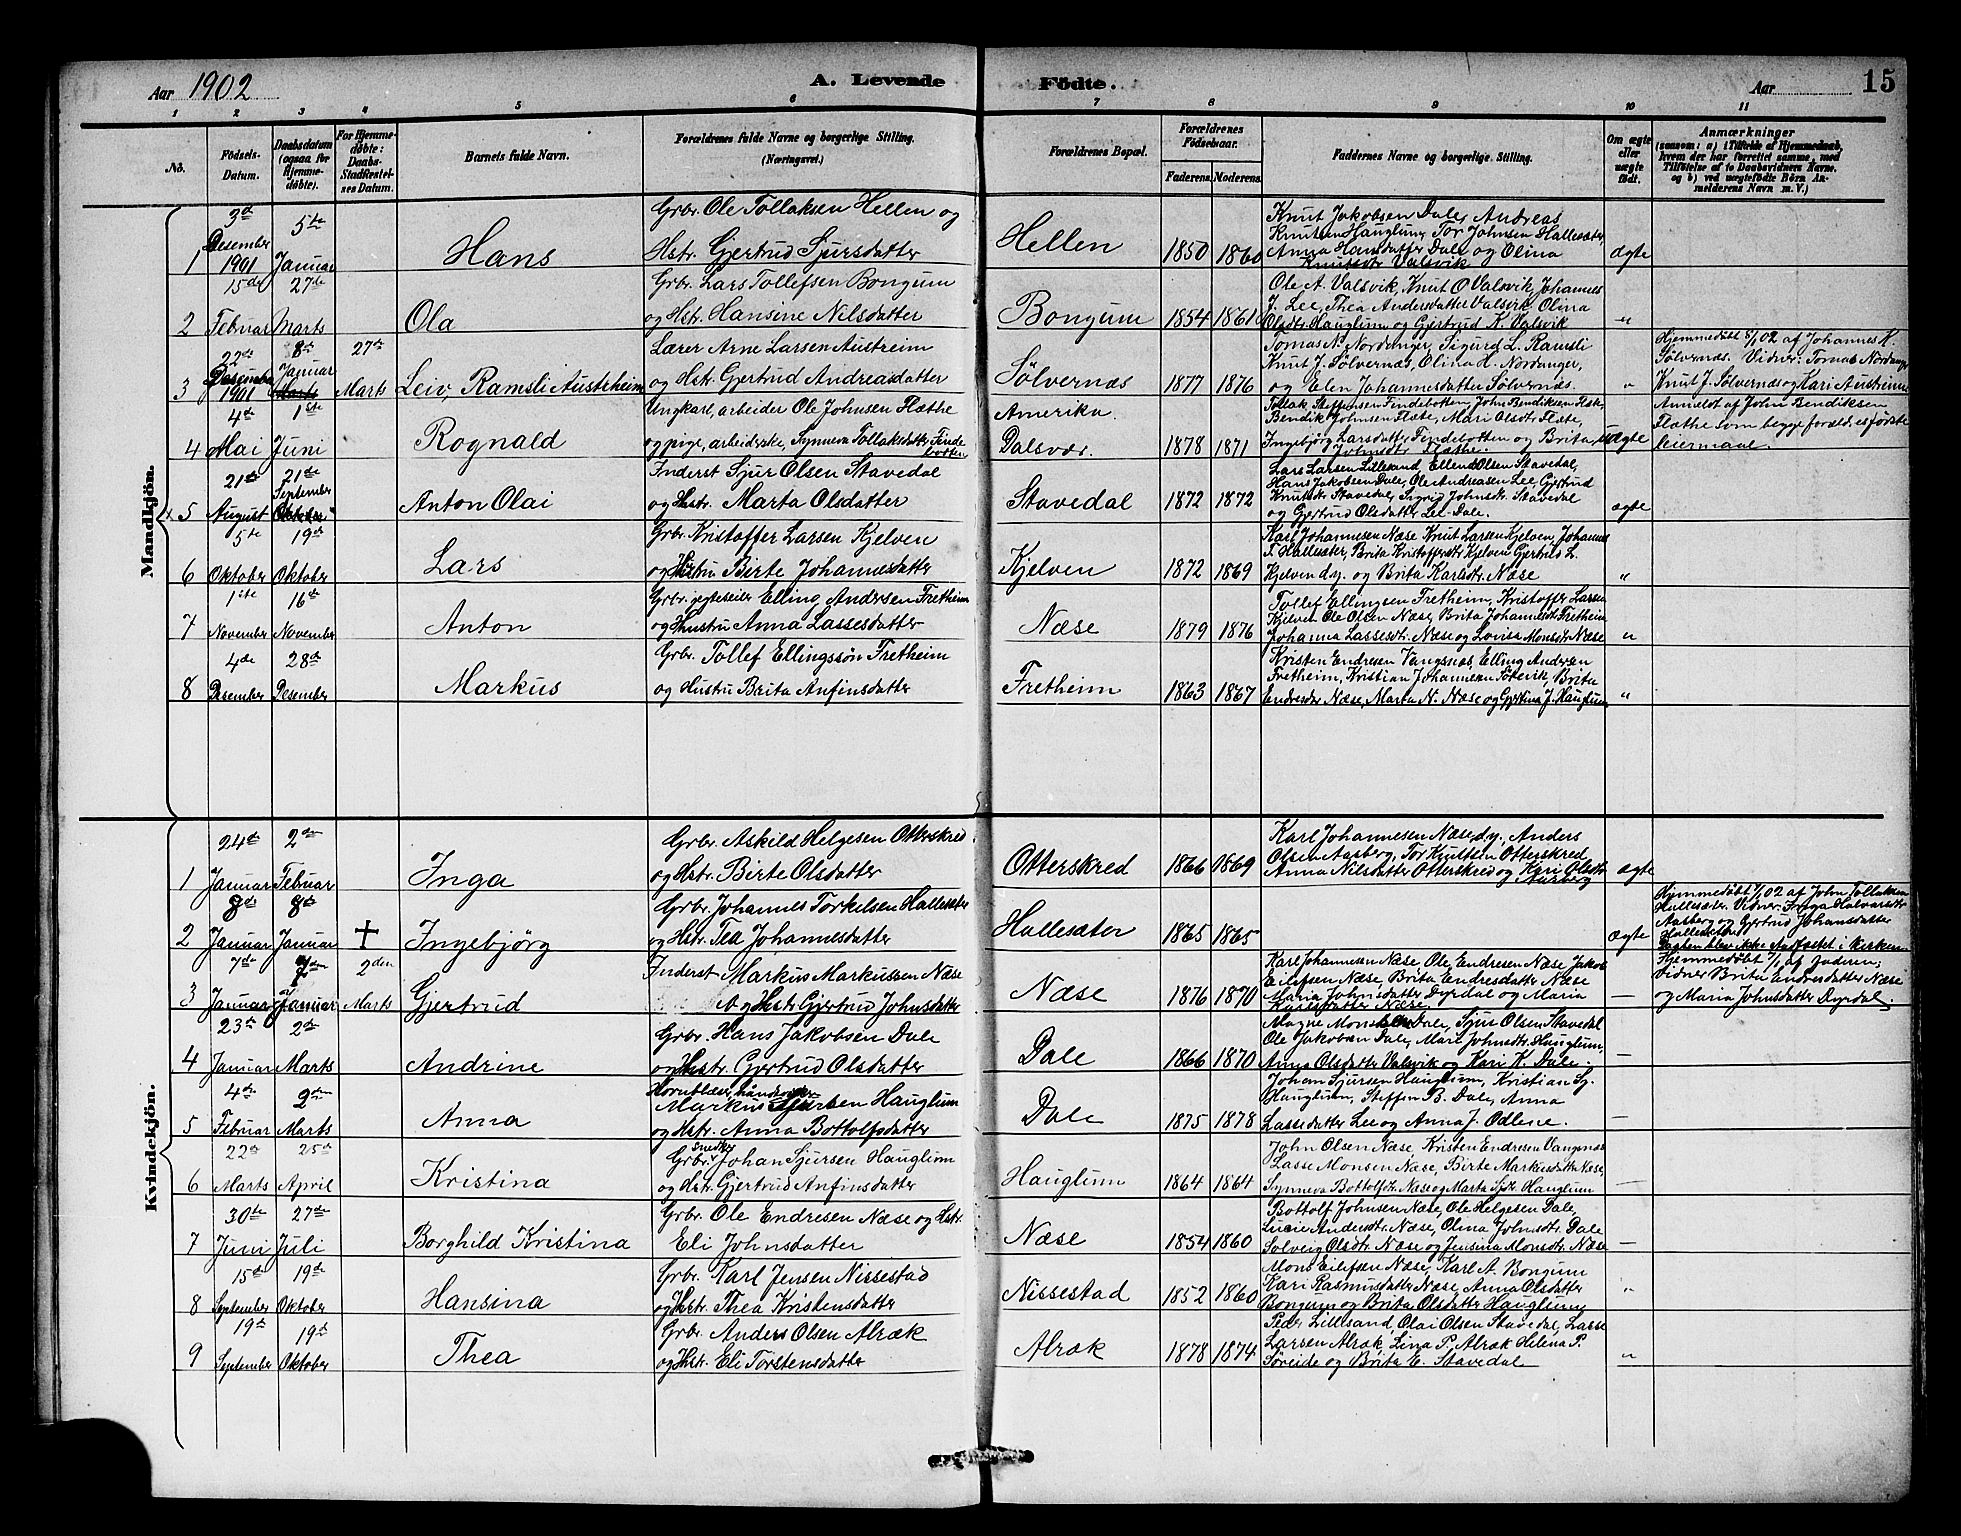 Aar 1902
A. Levende Födte.
Aar
15
1 2 3 4 5 6 7 8 9 10 11
No.
Födsels-
Datum.
Daabsdatum
(ogsaa for
Hjemme-
døbte).
For Hjemme-
døbte:
Daabs-
Stadfæstel-
ses Datum.
Barnets fulde Navn.
Forældrenes fulde Navne og borgerlige Stilling.
(Næringsvei.)
Forældrenes Bopæl.
Forældrenes
Födselsaar.
Faderens. Moderens.
Faddernes Navne og borgerlige Stilling.
Om ægte
eller
uægte
født.
Anmærkninger
(saasom: a) i Tilfælde af Hjemmedaab,
hvem der har forrettet samme, med
Tilföielse af to Daabsvidners Navne,
og b) ved uægtefödte Börn An-
melderens Navn m. V.)
Mandkjön.
1
3de
Desember
1901
5te
Januar
Hans
Grbr. Ole Tollaksen Hellen og
Hstr. Gjertrud Sjursdatter
Hellen
1850 1860
Knut Jakobsen Dale, Andreas
Knutsen Hauglum, Tor Johnsen Hallesæter,
Anna Hansdatter Dale og Olina
Knutsdtr Valsvik
ægte
2
15de
Februar
27de
Marts
Ola
Grbr. Lars Tollefsen Bongum
og Hstr. Hansine Nilsdatter
Bongum
1854 1861
Ole A. Valsvik, Knut O Valsvik, Johannes
J. Lee, Thea Andersdatter Valsvik Olina
Olsdtr. Hauglum og Gjertrud K. Valsvik
"
3
22de
Desember
1901
8de
Januar
Marts
27de
Marts
Leiv Ramsli Austreim
Lærer Arne Larsen Austreim
og Hstr. Gjertrud Andreasdatter
Sølvernæs
1877 1876
Tomas N. Nordanger, Sigurd L. Ramsli
Knut J. Sølvernæs, Olina H. Nordanger,
og Elen Johannesdatter Sølvernæs.
"
Hjemmedøbt 8/1 02 af Johannes K.
Sølvernæs. Vidner: Tomas Nordanger
Knut J. Sølvernæs og Kari Austreim
4
4de
Mai
1ste
Juni
Rognald
Ungkarl, arbeider Ole Johnsen Flæthe
og pige, arbeiderske, Synneva Tollaksdatter Finde
botten
Amerika.
Dalsvær.
1878 1871
Tollak Steffensen Findebotten, John Bendiksen Flæte,
Bendik Johnsen Flæte, Mari Olsdtr. Flæte,
Ingebjørg Larsdatter Findebotten og Brita
Johnsdtr. Flæthe.
uægte
Anmeldt af John Bendiksen
Flæthe som begge foræld.es første
leiermaal.
5
21de
August
21de
September
Oktober
Anton Olai
Inderst Sjur Olsen Stavedal
og Hstr. Marta Olsdatter
Stavedal
1872 1872
Lars Larsen Lillesand, Ellend Olsen Stavedal,
Hans Jakobsen Dale, Ole Andreasen Lee, Gjertrud
Knutsdtr Stavedal, Sigrid Johnsdtr. Stavedal
og Gjertrud Olsdatter Lee-Dale.
ægte
6
5te
Oktober
19de
Oktober
Lars
Grbr. Kristoffer Larsen Kjelven
og Hustru Birte Johannesdatter
Kjelven
1872 1869
Karl Johannesen Næse Knut Larsen Kjelven, Johannes
T. Hallesæter, Brita Kristoffersdtr Kjelven Gjertrud L.
Kjelven d.y. og Brita Karlsdtr. Næse
"
7
1ste
November
16de
November
Anton
Grbr. jegteeier Elling Andersen Fretheim
og Hustru Anna Lassesdatter
Næse
1879 1876
Tollef Ellingsen Fretheim, Kristoffer Larsen
Kjelven Ole Olsen Næse, Brita Johannesdtr Fretheim
Johanna Lassesdtr. Næse og Lovisa Monsdtr. Næse
"
8
4de
Desember
28de
Desember
Markus
Grbr. Tollef Ellingssøn Fretheim
og Hustru Brita Anfinsdatter
Fretheim
1863 1867
Kristen Endresen Vangsnæs, Elling Andersen
Fretheim, Kristian Johannesen Brita
Endresdtr Næse, Marta N. Næse og Gjertina J. Hauglum
"
Kvindekjön.
1
24de
Januar
2den
Februar
Inga
Grbr. Askild Helgesen Otterskred
og Hstr. Birte Olsdatter
Otterskred
1866 1869
Karl Johannesen Næse d.y. Anders
Olsen Aasberg, Tor Knutsen Otterskred
Anna Nilsdatter Otterskred og Kari Olsdtr
Aarberg
ægte
2
8de
Januar
8de
Januar
+
Ingebjörg
Grbr. Johannes Torkelsen Hallesæter
og Hstr. Tea Johannesdatter
Hallesæter
1865 1865
ægte
Hjemmedøbt 7/1 02 af John Tollaksen
Hallesæter. Vidner: Inga Halvarsdtr
Aasberg og Gjertrud Johansdatter
Hallesæter
Daaben blev ikke stadfæstet i kirken
3
7de
Januar
7den
Januar
2den
Marts
Gjertrud
Inderst Markus Markussen Næse
og Hstr Gjertrud Johnsdatter
Næse
1876 1870
Karl Johannesen Næse, Ole Endresen Næse, Jakob
Eilifsen Næse, Brita Endresdatter Næse
Maria Johnsdatter Dyrdal og Maria
Karlsdatter Næse
—
Hjemmedøbt 7/1 af faderen;
vidner Brita Endresdatter Næse
og Maria Johnsdatter Dyrdal.
4
23de
Januar
2den
Marts
Andrine
Grbr. Hans Jakobsen Dale
og Hstr. Gjertrud Olsdatter
Dale
1866 1870
Magne Monssen Dale, Sjur Olsen Stavedal
Ole Jakobsen Dale, Mari Johnsdtr. Hauglum,
Anna Olsdatter Valsvik og Kari K. Dale.
—
5
4de
Februar
2den
Marts
Anna
Hornblæser,
Markus Sjursen Hauglum
og Hstr. Anna Bottolfsdatter
Dale
1875 1878
Johan Sjursen Hauglum, Kristian Sj.
Hauglum, Steffen B. Dale, Anna
Lassedatter Lee og Anna J. Odlene.
—
6
22de
Marts
25de
April
Kristina
Snedker
Grbr. Johan Sjursen Hauglum
og Hstr. Gjertrud Anfinsdatter
Hauglum
1864 1864
John Olsen Næse, Kristen Endresen Vangsnæs
Lasse Monsen Næse, Birte Markusdatter Næse,
Synneva Bottolfsdtr. Næse og Marta Sjdtr. Hauglum
—
7
30te
Juni
27de
Juli
Borghild Kristina
Grbr. Ole Endresen Næse og Hstr.
Eli Johnsdatter
Næse
1854 1860
Bottolf Johnsen Næse, Ole Helgesen Dale,
Lucie Andersdtr. Næse, Olina Johnsdtr. Dale
Solveig Olsdtr. Næse og Jensina Monsdtr. Næse
—
8
15de
September
19de
Oktober
Hansina
Grbr. Karl Jensen Nissestad
og Hstr. Thea Kristensdatter
Nissestad
1852 1860
Mons Eilefsen Næse, Karl A. Bongum
Kari Rasmusdatter Næse, Anna Olsdatter
Bongum og Brita Olsdatter Hauglum
"
9
19de
September
19de
Oktober
Thea
Grbr. Anders Olsen Alræk
og Hstr. Eli Torstensdatter
Alræk
1878 1874
Peder Lillesand, Olai Olsen Stavedal, Lasse
Larsen Alræk, Lina P. Alræk Helina P.
Søreide og Brita E. Stavedal
"